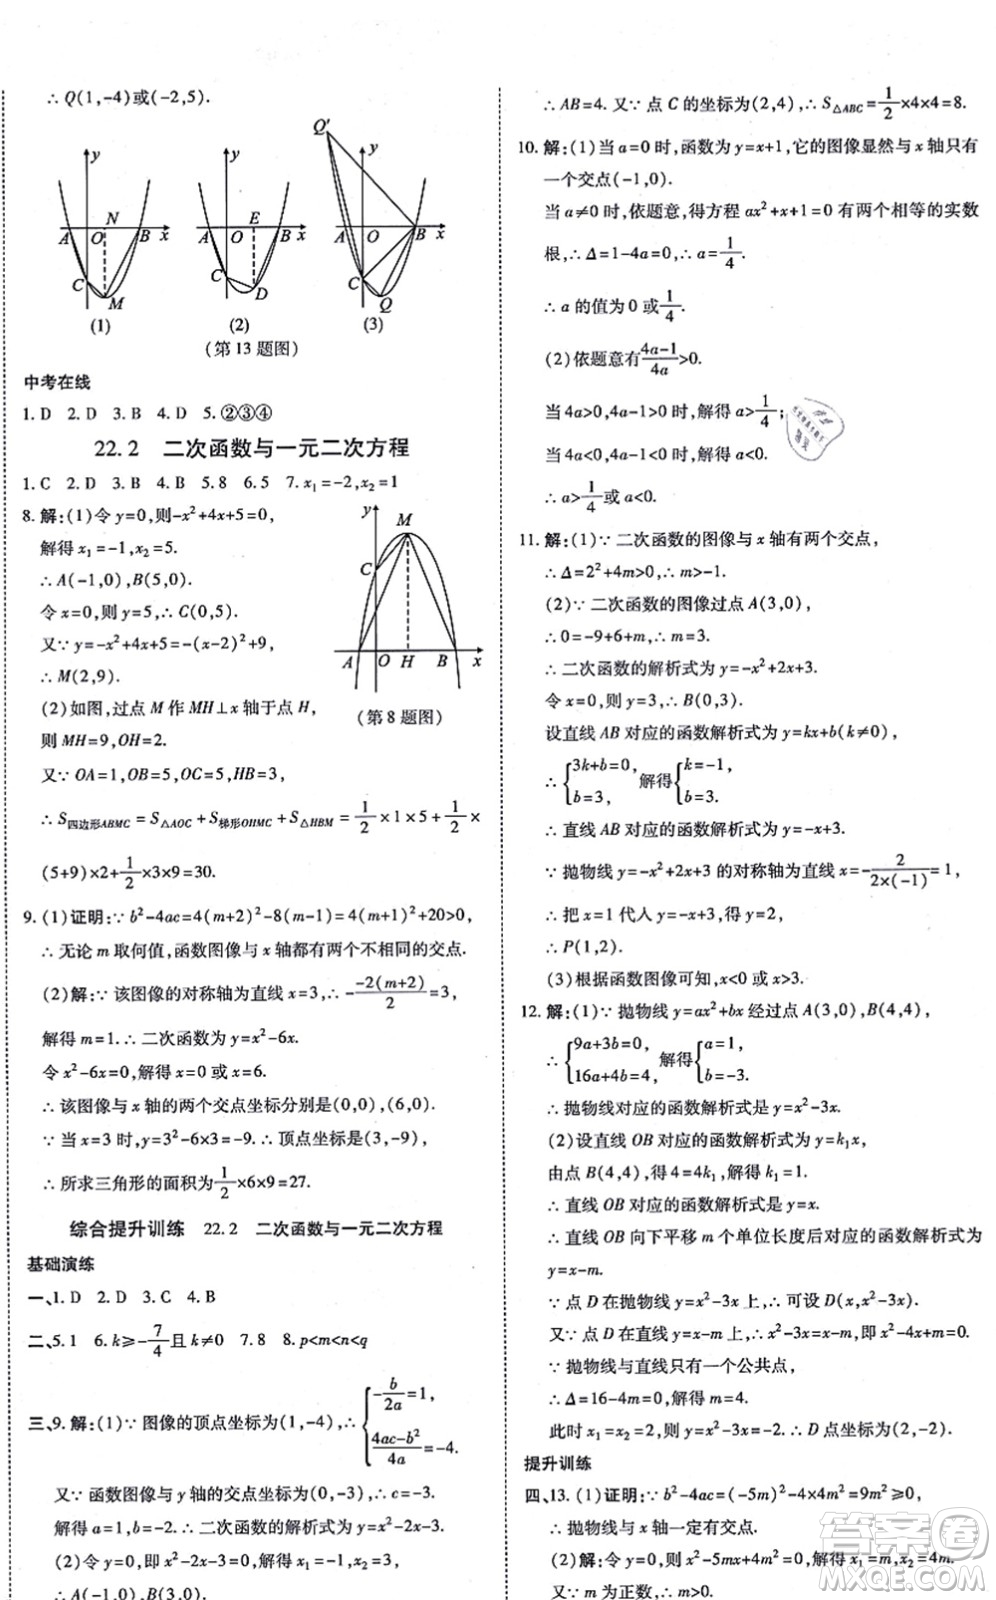 ∴ Q(1,-4)或(-2,5).
y
N
A
O
B
x
C
M
(1)
y
E
A
O
B
x
C
D
(2)
Q′
y
A
O
B
x
C
Q
(3)
(第 13 题图)
中考在线
1. D 2. D 3. B 4. D 5. ②③④
22.2 二次函数与一元二次方程
1. C 2. D 3. B 4. B 5. 8 6. 5 7. x₁=-2,x₂=1
8. 解:(1)令 y=0,则-x²+4x+5=0,
解得 x₁=-1,x₂=5.
∴ A(-1,0),B(5,0).
令 x=0,则 y=5,∴ C(0,5).
又∵ y=-x²+4x+5=-(x-2)²+9,
∴ M(2,9).
(2)如图,过点 M 作 MH⊥x 轴于点 H,
则 MH=9,OH=2.
又∵ OA=1,OB=5,OC=5,HB=3,
y
M
C
A
O
H
B
x
(第 8 题图)
∴ S四边形ABMC=S△AOC+S梯形OHMC+S△HBM=1/2×1×5+1/2×
(5+9)×2+1/2×3×9=30.
9. (1)证明:∵ b²-4ac=4(m+2)²-8(m-1)=4(m+1)²+20>0,
∴ 无论 m 取何值,函数图像与 x 轴都有两个不相同的交点.
(2)解:∵ 该图像的对称轴为直线 x=3,∴ -(-2(m+2))/2=3,
解得 m=1.∴ 二次函数为 y=x²-6x.
令 x²-6x=0,解得 x=0 或 x=6.
∴ 该图像与 x 轴的两个交点坐标分别是(0,0),(6,0).
∵ 当 x=3 时,y=3²-6×3=-9.∴ 顶点坐标(3,-9),
∴ 所求三角形的面积为1/2×6×9=27.
综合提升训练 22.2 二次函数与一元二次方程
基础演练
一、1. D 2. D 3. C 4. B
二、5. 1 6. k≥-7/4且 k≠0 7. 8 8. p<m<n<q
三、9. 解:(1)∵ 图像的顶点坐标为(1,-4),∴ {-b/2a=1, (4ac-b²)/4a=-4.
又∵ 函数图像与 y 轴的交点坐标为(0,-3),∴ c=-3.
解得 a=1,b=-2.∴ 二次函数解析式为 y=x²-2x-3.
(2)令 y=0,即 x²-2x-3=0,解得 x₁=-1,x₂=3.
∴ A(-1,0),B(3,0).
∴ AB=4. 又∵ 点 C 的坐标为(2,4),∴ S△ABC=1/2×4×4=8.
10. 解:(1)当 a=0 时,函数为 y=x+1,它的图像显然与 x 轴只有
一个交点(-1,0).
当 a≠0 时,依题意,得方程 ax²+x+1=0 有两个相等的实数
根,∴ Δ=1-4a=0,∴ a=1/4.
∴ a 的值为 0 或1/4.
(2)依题意有(4a-1)/4a>0.
当 4a>0,4a-1>0 时,解得 a>1/4;
当 4a<0,4a-1<0 时,解得 a<0.
∴ a>1/4或 a<0.
11. 解:(1)∵ 二次函数的图像与 x 轴有两个交点,
∴ Δ=2²+4m>0,∴ m>-1.
(2)∵ 二次函数的图像过点 A(3,0),
∴ 0=-9+6+m,∴ m=3.
∴ 二次函数的解析式为 y=-x²+2x+3.
令 x=0,则 y=3,∴ B(0,3).
设直线 AB 对应的函数解析式为 y=kx+b(k≠0),
∴ {3k+b=0, b=3, 解得{k=-1, b=3,
∴ 直线 AB 对应的函数解析式为 y=-x+3.
∵ 抛物线 y=-x²+2x+3 的对称轴为直线 x=-2/(2×(-1))=1,
∴ 把 x=1 代入 y=-x+3,得 y=2,
∴ P(1,2).
(3)根据函数图像可知,x<0 或 x>3.
12. 解:(1)∵ 抛物线 y=ax²+bx 经过点 A(3,0),B(4,4),
∴ {9a+3b=0, 16a+4b=4, 解得{a=1, b=-3.
∴ 抛物线对应的函数解析式是 y=x²-3x.
(2)设直线 OB 对应的函数解析式为 y=k₁x,
由点 B(4,4),得 4=4k₁,解得 k₁=1.
∴ 直线 OB 对应的函数解析式为 y=x.
∴ 直线 OB 向下平移 m 个单位长度后对应的函数解析式为
y=x-m.
∵ 点 D 在抛物线 y=x²-3x 上,∴ 可设 D(x,x²-3x).
又∵ 点 D 在直线 y=x-m 上,∴ x²-3x=x-m,即 x²-4x+m=0.
∵ 抛物线与直线只有一个公共点,
∴ Δ=16-4m=0,解得 m=4.
此时 x₁=x₂=2,则 y=x²-3x=-2,∴ D 点坐标为(2,-2).
提升训练
四、13. (1)证明:∵ b²-4ac=(-5m)²-4×4m²=9m²≥0,
∴ 抛物线与 x 轴一定有交点.
(2)解:令 y=0,则 x²-5mx+4m²=0,解得 x₁=m,x₂=4m.
又∵ m 为正数,∴ m<4m.
答案圈
MXQE.COM